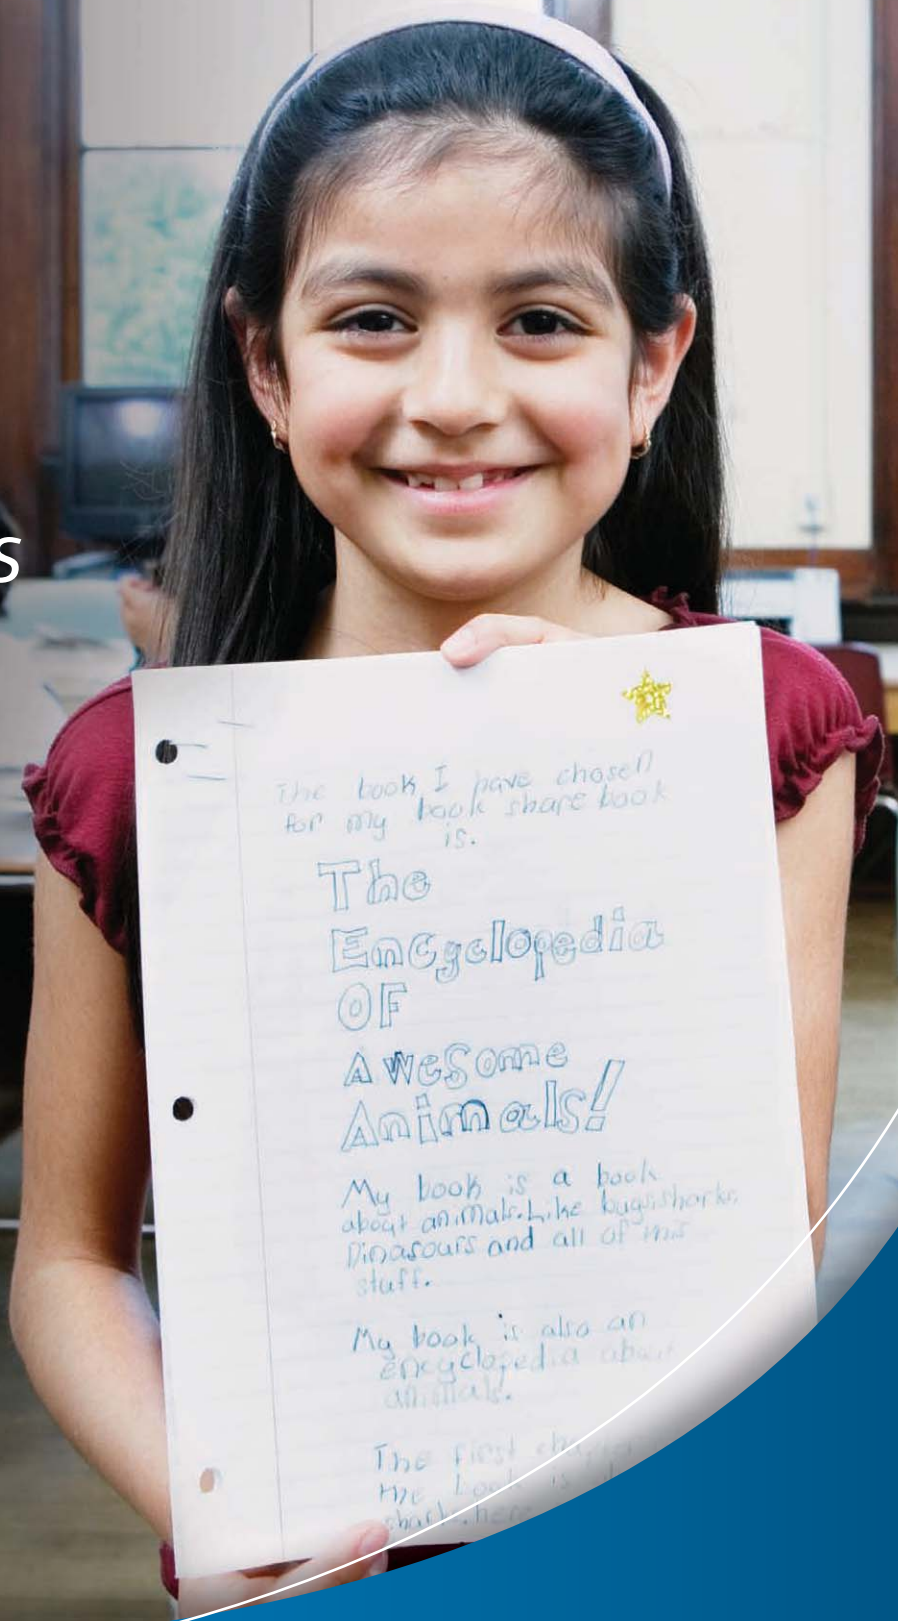 s
The book I have chosen
for my book share book
is.
The
Encyclopedia
OF
Awesome
Animals!
My book is a book
about animals. Like bugs, sharks,
Dinasours and all of this
stuff.
My book is also an
encyclopedia about
animals.
The first
the book is
shark. here